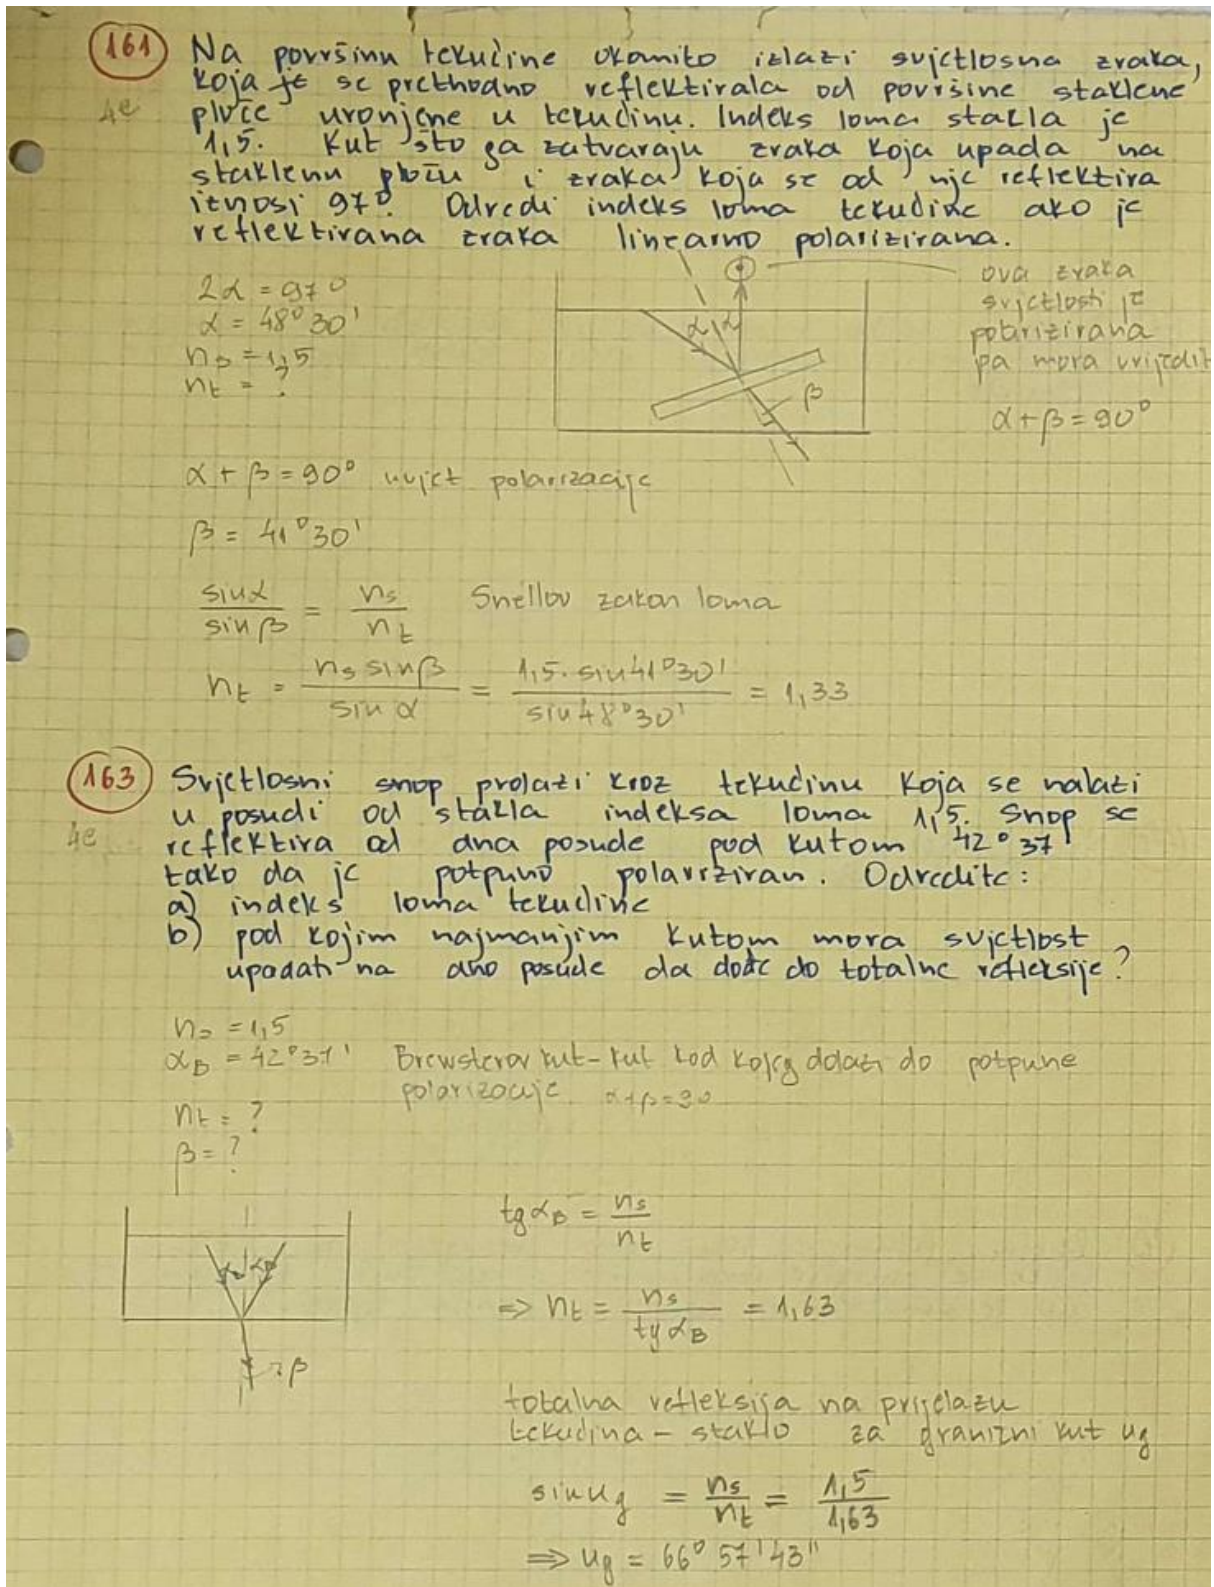 161 Na površinu tekućine okomito izlazi svjetlosna zraka,
koja je se prethodno reflektirala od površine staklene
4e ploče uronjene u tekućinu. Indeks loma stakla je
1,5. Kut što ga zatvaraju zraka koja upada na
staklenu ploču i zraka koja se od nje reflektira
iznosi 97°. Odredi indeks loma tekućine ako je
reflektirana zraka linearno polarizirana.
2α = 97°
α = 48°30'
ns = 1,5
nt = ?
α α
β
ova zraka
svjetlosti je
polarizirana
pa mora vrijedit
α+β=90°
α + β = 90° uvjet polarizacije
β = 41°30'
sinα / sinβ = ns / nt Snellov zakon loma
nt = ns sinβ / sin α = 1,5 · sin41°30' / sin48°30' = 1,33
163 Svjetlosni snop prolazi kroz tekućinu koja se nalazi
u posudi od stakla indeksa loma 1,5. Snop se
4e reflektira od dna posude pod kutom 42°37'
tako da je potpuno polariziran. Odredite:
a) indeks loma tekućine
b) pod kojim najmanjim kutom mora svjetlost
upadati na dno posude da dođe do totalne refleksije?
ns = 1,5
αB = 42°37' Brewsterov kut-kut kod kojeg dolazi do potpune
polarizacije α+β=90
nt = ?
β = ?
αB αB
β
tgαB = ns / nt
⇒ nt = ns / tgαB = 1,63
totalna refleksija na prijelazu
tekućina - staklo za granični kut ug
sinug = ns / nt = 1,5 / 1,63
⇒ ug = 66° 57' 43"